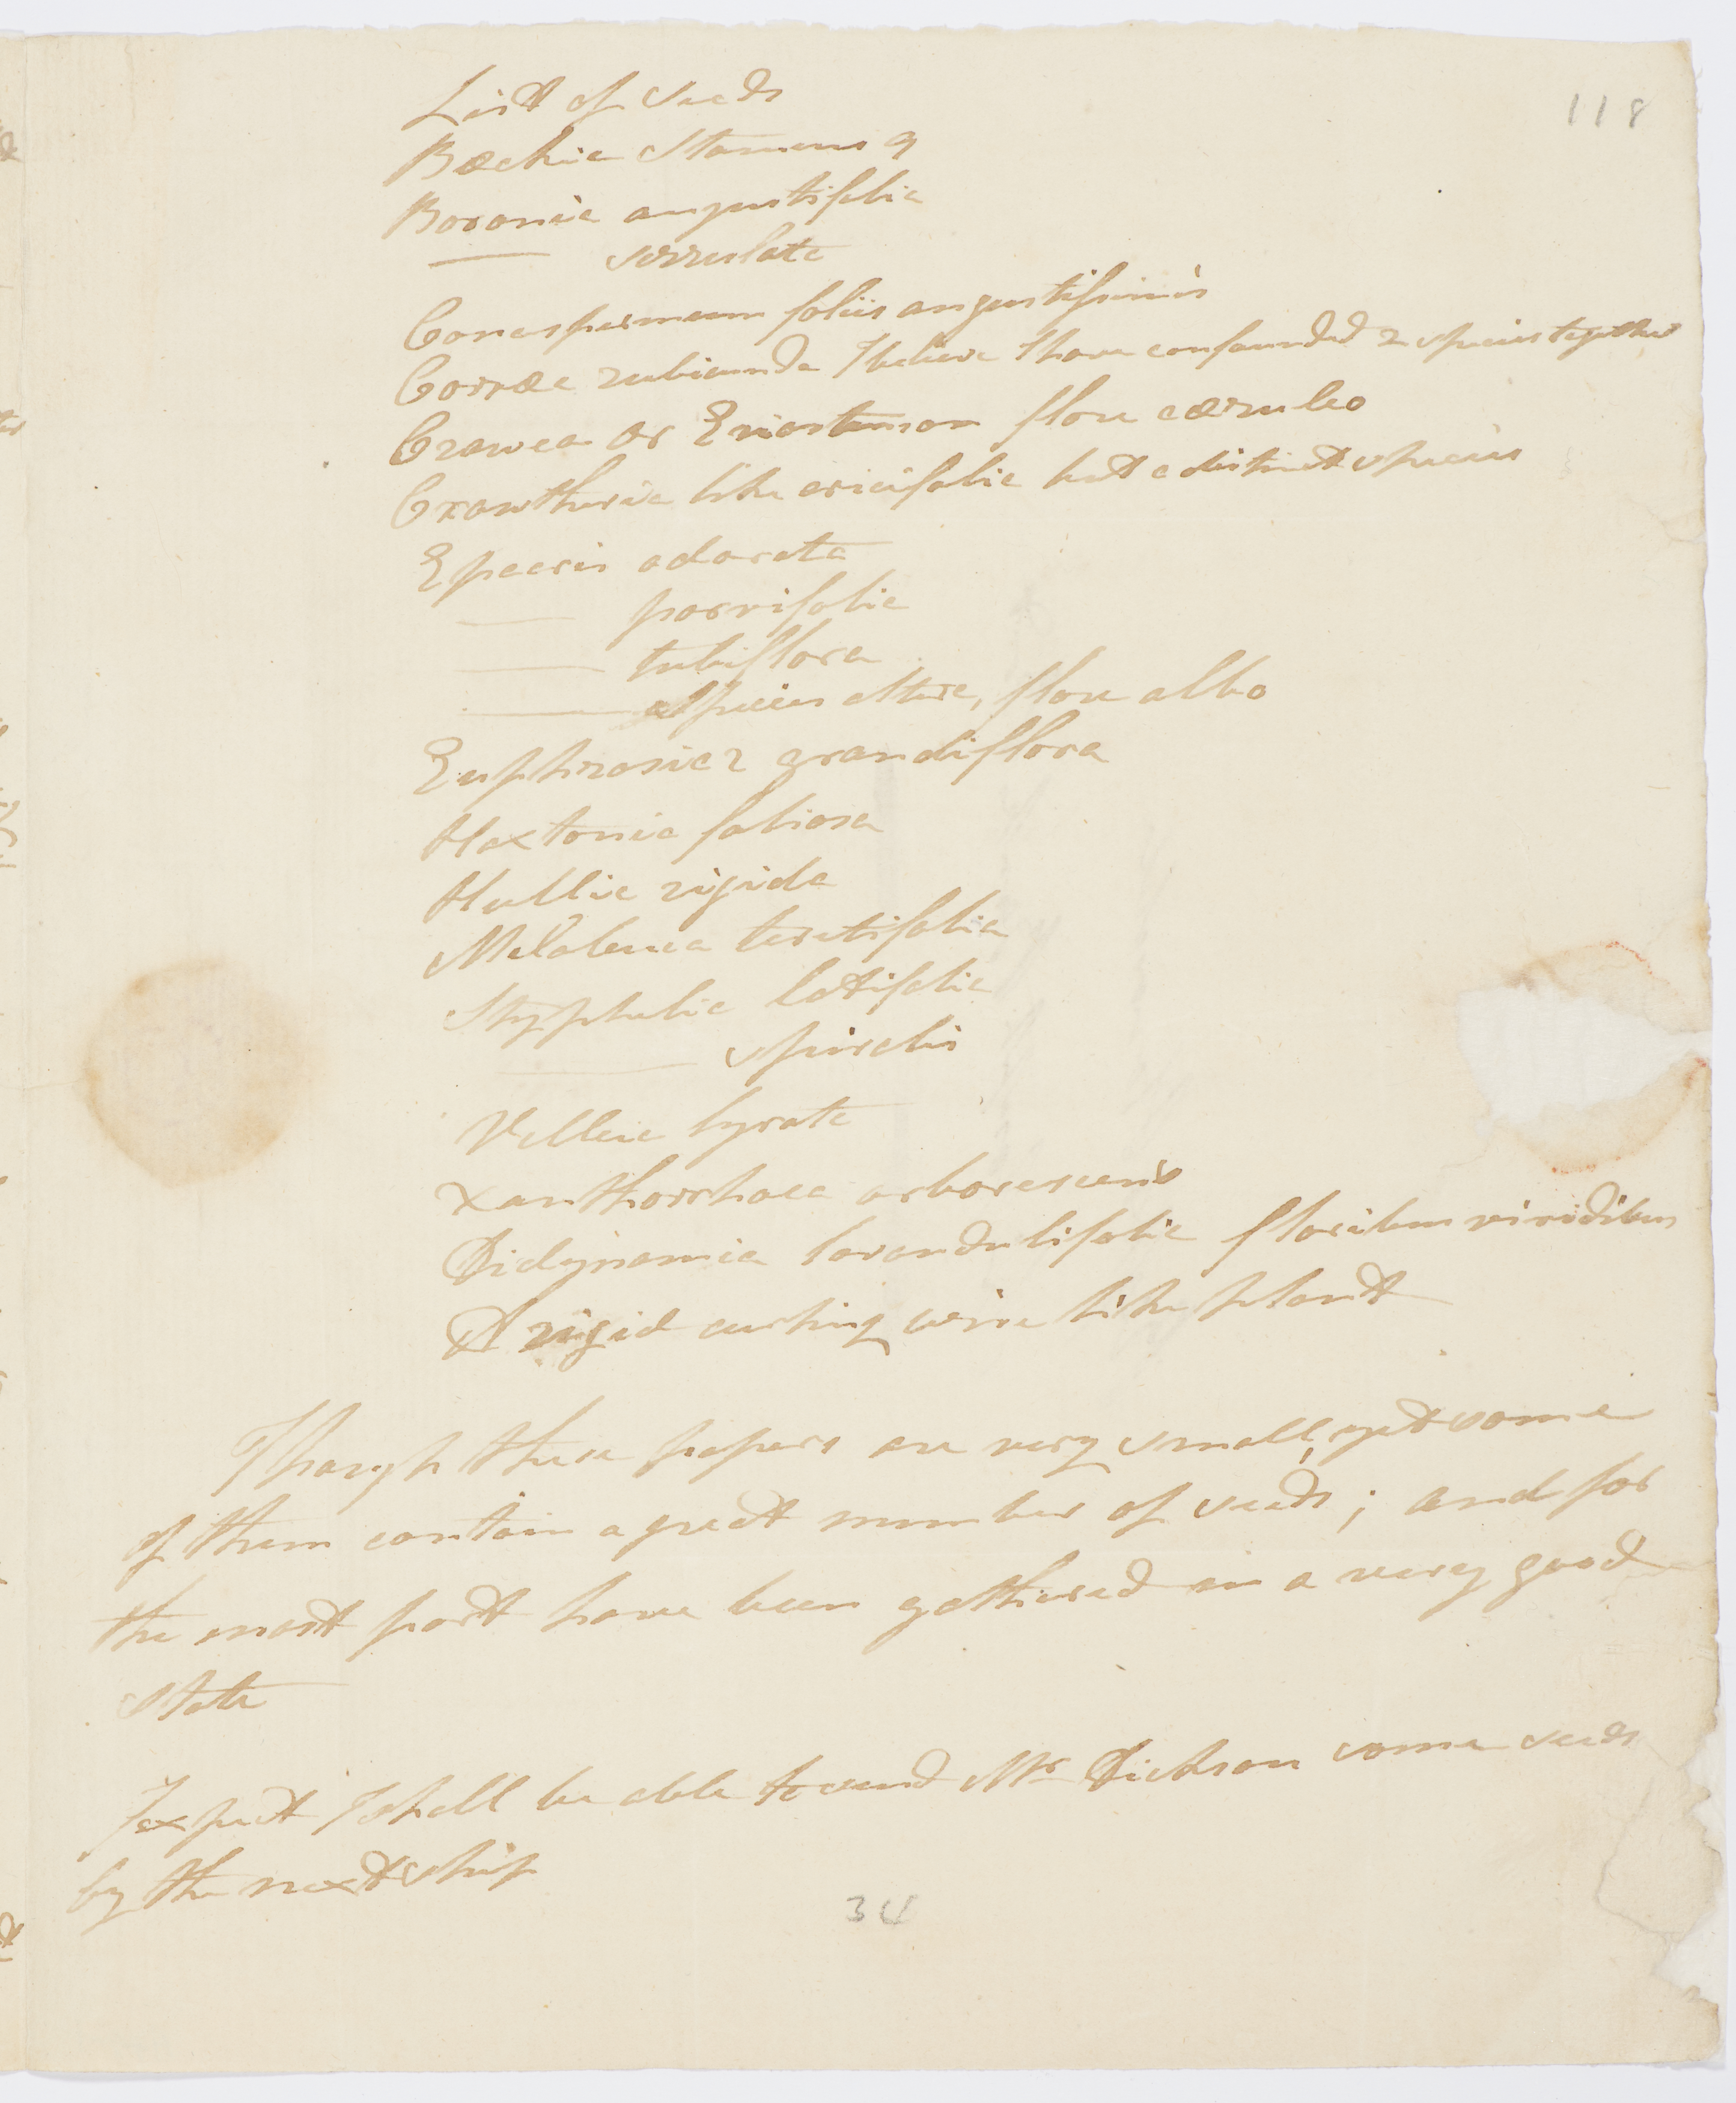 118
List of seeds
Bæckia stamens 9
Boronia angustifolia
—— serrulata
Conospermum foliis angustissimis
Corræa rubicunda I believe I have confounded 2 species together
Crowea or Eriostemon flore cæruleo
Croweathoria like ericifolia but a distinct species
Epacris odorata
—— parvifolia
—— tubiflora
—— species altera, flore albo
Euphrasia 2 grandiflora
Haxtonia foliosa
Hullia rigida
Melaleuca teretifolia
Styphelia latifolia
—— spiralis
Velleia lyrata
Xanthorrhaea arborescens
Didynamia lavandulifolia floribus viridibus
A rigid curling wire like plant
Though these papers are very small, yet some
of them contain a great number of seeds; and for
the most part have been gathered in a very good
state
I expect I shall be able to send Mr Dickson some seeds
by the next ship
34